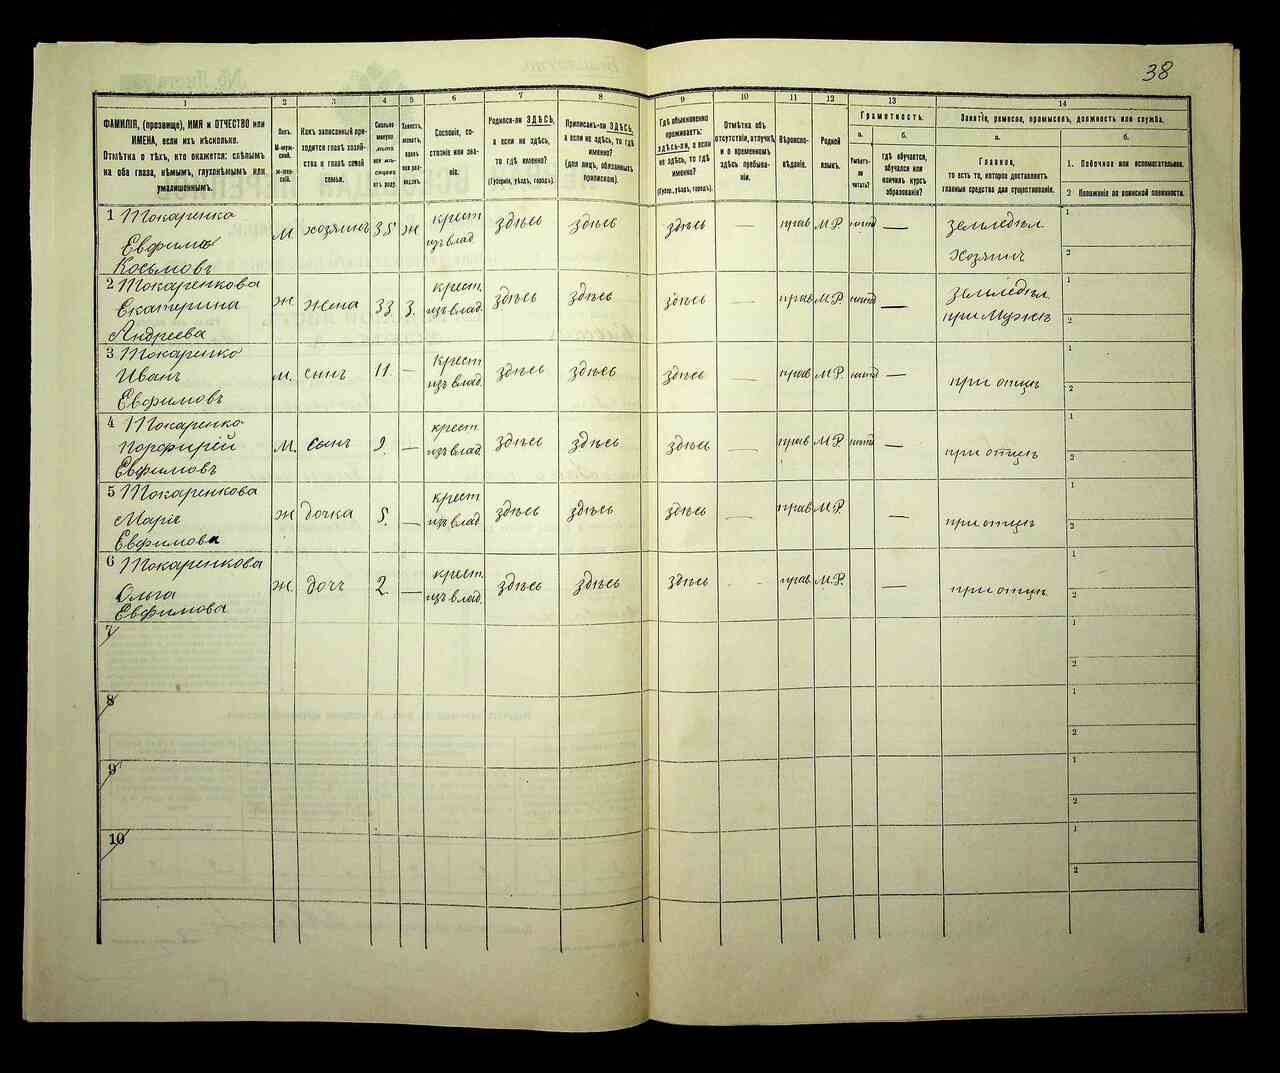 38
1 2 3 4 5 6 7 8 9 10 11 12 13 14
ФАМИЛІЯ, (прозвище), ИМЯ и ОТЧЕСТВО или
ИМЕНА, если ихъ нѣсколько.
Отмѣтка о тѣхъ, кто окажется: слѣпымъ
на оба глаза, нѣмымъ, глухонѣмымъ или
умалишеннымъ.
Полъ.
М-муж-
ской.
Ж-жен-
скій.
Какъ записанный при-
ходится главѣ хозяй-
ства и главѣ своей
семьи.
Сколько
минуло
лѣтъ
или мѣ-
сяцевъ
отъ роду
Холостъ,
женатъ,
вдовъ
или раз-
веденъ
Сословіе, со-
стояніе или зва-
ніе.
Родился-ли ЗДѢСЬ,
а если не здѣсь,
то гдѣ именно?
(Губернія, уѣздъ, городъ).
Приписанъ-ли ЗДѢСЬ,
а если не здѣсь, то гдѣ
именно?
(для лицъ, обязанныхъ
припискою).
Гдѣ обыкновенно
проживаетъ:
здѣсь-ли, а если
не здѣсь, то гдѣ
именно?
(Губер., уѣздъ, городъ).
Отмѣтка объ
отсутствіи, отлучкѣ
и о временномъ
здѣсь пребыва-
ніи.
Вѣроиспо-
вѣданіе.
Родной
языкъ.
Грамотность.
а.
Умѣетъ-
ли
читать?
б.
гдѣ обучается,
обучался или
кончилъ курсъ
образованія?
Занятіе, ремесло, промыселъ, должность или служба.
а.
Главное,
то есть то, которое доставляетъ
главныя средства для существованія.
б.
1. Побочное или вспомогательное.
2 Положеніе по воинской повинности.
1 Токаренко
Евфимъ
Косьмовъ
М. хозяинъ 35 ж крест
изъ влад здѣсь здѣсь здѣсь — прав М.Р. —
земледѣл
хозяинъ
1
2
2 Токаренкова
Екатерина
Андреева
Ж жена 33 з. крест.
изъ влад. здѣсь здѣсь здѣсь — прав М.Р —
земледѣл
при мужѣ
1
2
3 Токаренко
Иванъ
Евфимовъ
М. сынъ 11 — крест
изъ влад. здѣсь здѣсь здѣсь — прав М.Р. —
при отцѣ
1
2
4 Токаренко
Порфирій
Евфимовъ
М. сынъ 9. — крест.
изъ влад. здѣсь здѣсь здѣсь — прав М.Р —
при отцѣ
1
2
5 Токаренкова
Маріе
Евфимова
Ж дочка 5. — крест
изъ влад здѣсь здѣсь здѣсь — прав М.Р —
при отцѣ
1
2
6 Токаренкова
Ольга
Евфимова
Ж. дочь 2 — крест.
изъ влад. здѣсь здѣсь здѣсь прав. М.Р. —
при отцѣ
1
2
7
1
2
8
1
2
9
1
2
10
1
2